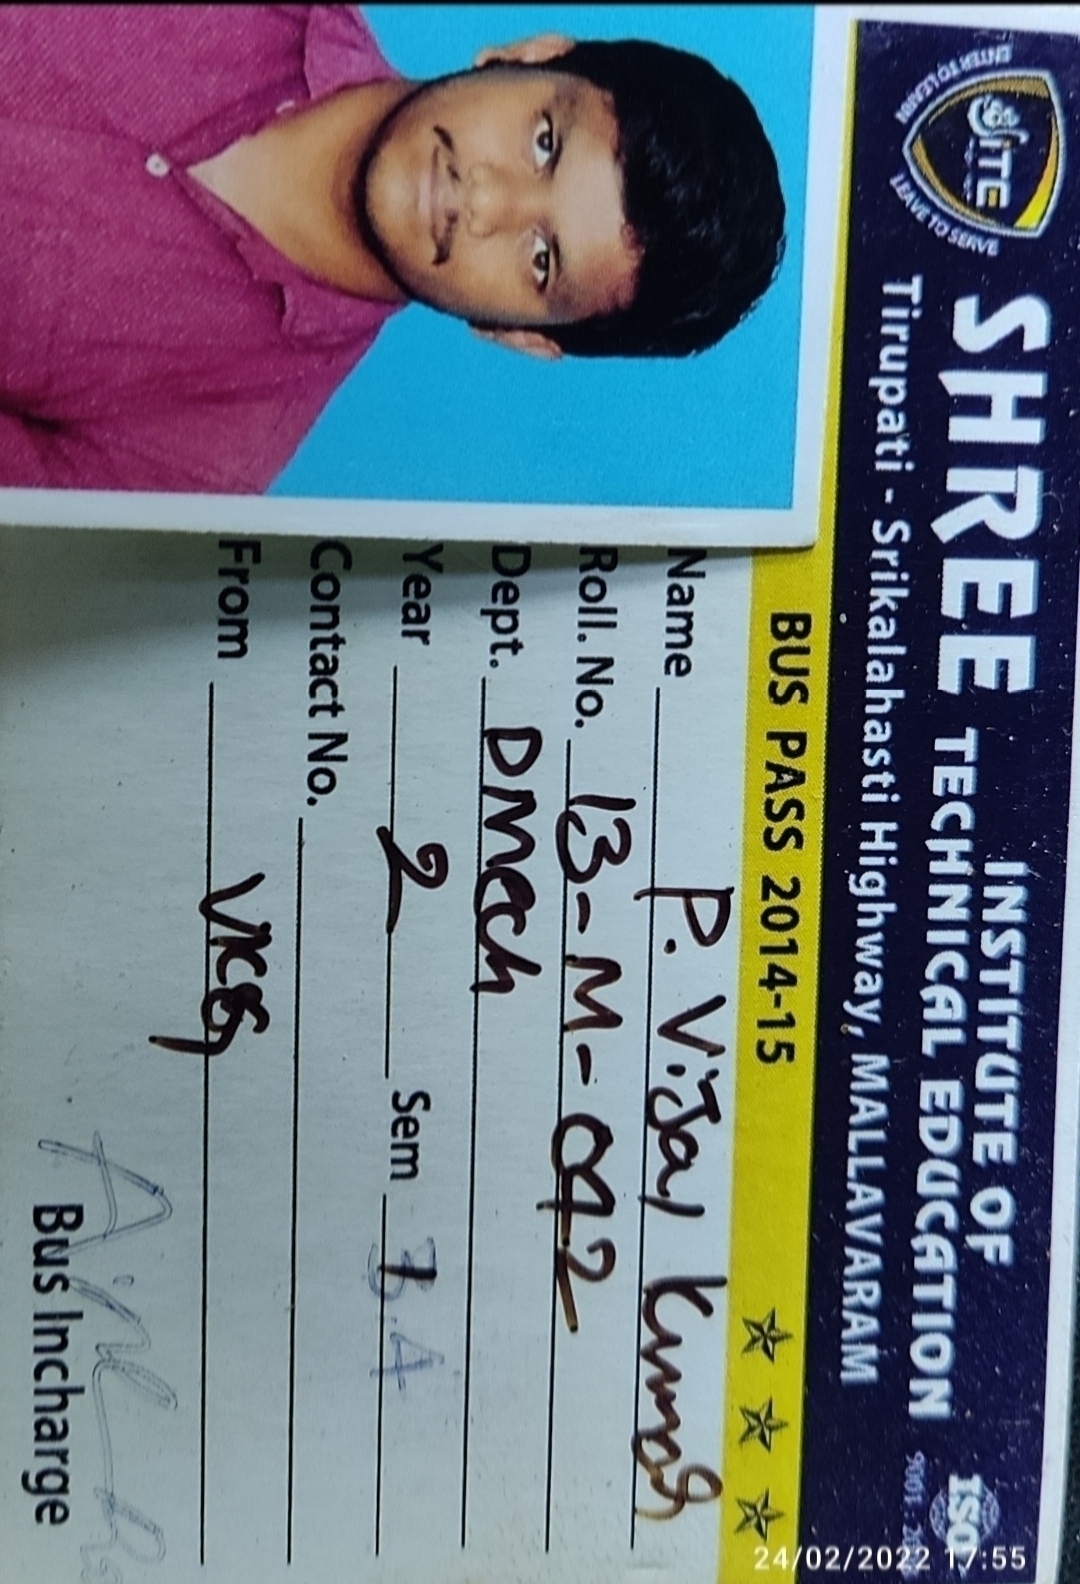 ENTER TO LEARN
SITE
LEAVE TO SERVE
SHREE INSTITUTE OF
TECHNICAL EDUCATION
Tirupati - Srikalahasti Highway, MALLAVARAM
ISO
9001
BUS PASS 2014-15
Name P. Vijay Kumar
Roll. No. 13-M-042
Dept. DMech
Year 2 Sem 3.4
Contact No.
From
Bus Incharge
24/02/2022 17:55